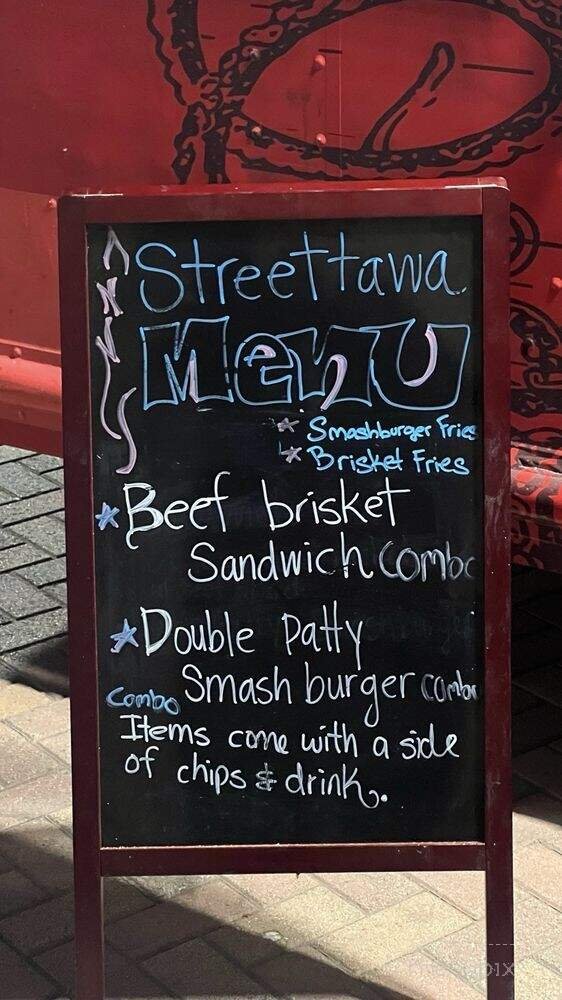 Ann's
Streettawa
Menu
* Smashburger Fries
* Brisket Fries
* Beef brisket
Sandwich Combo
* Double Patty
Smash burger combo
Combo
Items come with a side
of chips & drink.